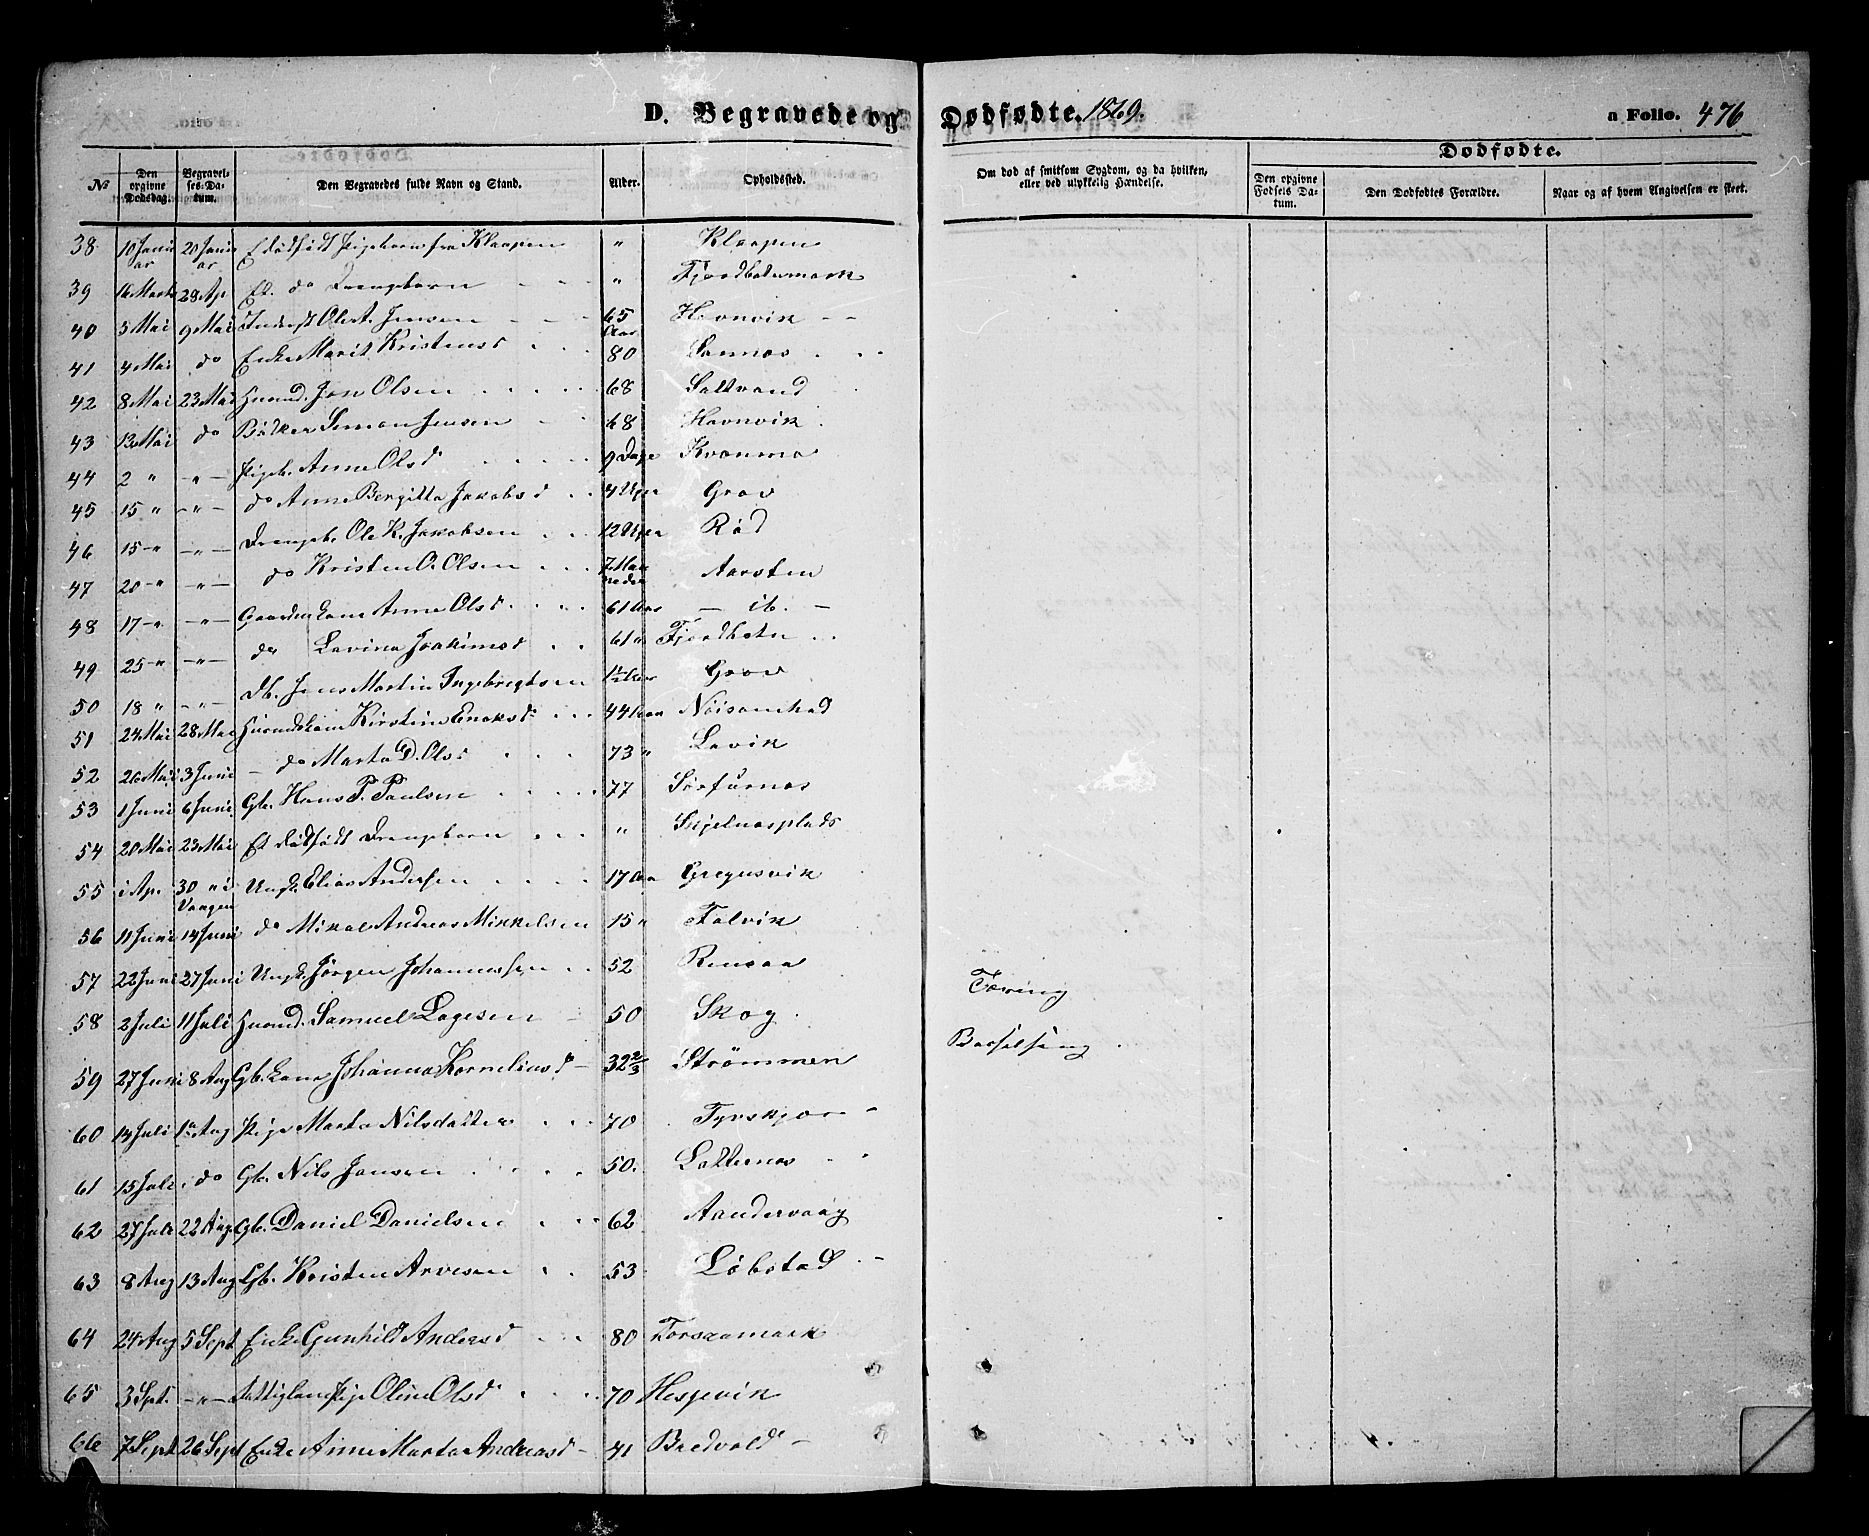 D. Begravede og Dødfødte. 1869. a Folio. 476
Dødfødte.
No Den opgivne Dødsdag. Begravelses-Datum. Den Begravedes fulde Navn og Stand. Alder. Opholdssted. Om død af smitsom Sygdom, og da hvilken, eller ved ulykkelig Hændelse. Den opgivne Fødsels Datum. Den Dødfødtes Forældre. Naar og af hvem Angivelsen er skeet.
38 10 Januar 20 Januar Et dødfødt Pigebarn fra Klaapen " Klaapen
39 16 Marts 28 Ap Et do Drengebarn " Fjordbotnmark
40 3 Mai 9 Mai Inderst Ole A. Jensen 65 Aar Havnvik
41 4 Mai do Enke Marit Kristensd 80 Sannes
42 8 Mai 23 Mai Huusmd. Jon Olsen 68 Saltvand
43 13 Mai do Bødker Simon Jensen 68 Havnvik
44 2 " - " - Pigeb. Anne Olsd 9 Dage Kvanma
45 15 " - " - do Anne Bergitta Jakobsd 4 Uger Grav
46 15 - " - " - Drengeb. Ole K. Jakobsen 12 Uger Rød
47 20 - " - " - do Kristen O. Olsen 7 Maaneder Aarsten
48 17 - " - " - Gaardmkone Anne Olsd 61 Aar - ib. -
49 25 - " - " - do Lavina Joakimsd 61 " Fjordbotn
50 18 " - " - Db. Jens Martin Ingebrigtsen 1½ Aar Grav
51 24 Mai 28 Mai Huusmdskone Kirstine Enoksd 44 Aar Nøisomhed
52 26 Mai 3 Juni - do Marta D. Olsd 73 " Lavik
53 1 Juni 6 Juni Gb. Hans P. Paulsen 77 Sørfurnes
54 20 Mai 23 Mai Et dødfødt Drengebarn " Skjelnesplads
55 i Ap. 30 " i Vaagen Ungk. Elias Andersen 17 Aar Gregusvik
56 11 Juni 14 Juni do Mikal Andreas Mikkelsen 15 " Falvik
57 22 Juni 27 Juni Ungk. Jørgen Johannessen 52 Rensaa
58 2 Juli 11 Juli Huusmd. Samuel Lagesen 50 Skog Tæring
59 27 Juni 8 Aug Gb. kone Johanna Korneliusd 32 2/3 Strømmen Barselseng
60 14 Juli 1 Aug Pige Marta Nilsdatter 70 Tyvskjær
61 15 Juli do Gb. Nils Jansen 50. Latternes
62 27 Juli 22 Aug Gb. Daniel Danielsen 62 Aandervaag
63 8 Aug 13 Aug Gb. Kristen Arvesen 53 Løbstad
64 24 Aug 5 Sept Enke Gunhild Andersd 80 Forsaamark
65 3 Sept. - " - Fattiglem Pige Oline Olsd 70 Hesjevik
66 7 Sept 26 Sept Enke Anne Marta Andreasd 41 Bredvold